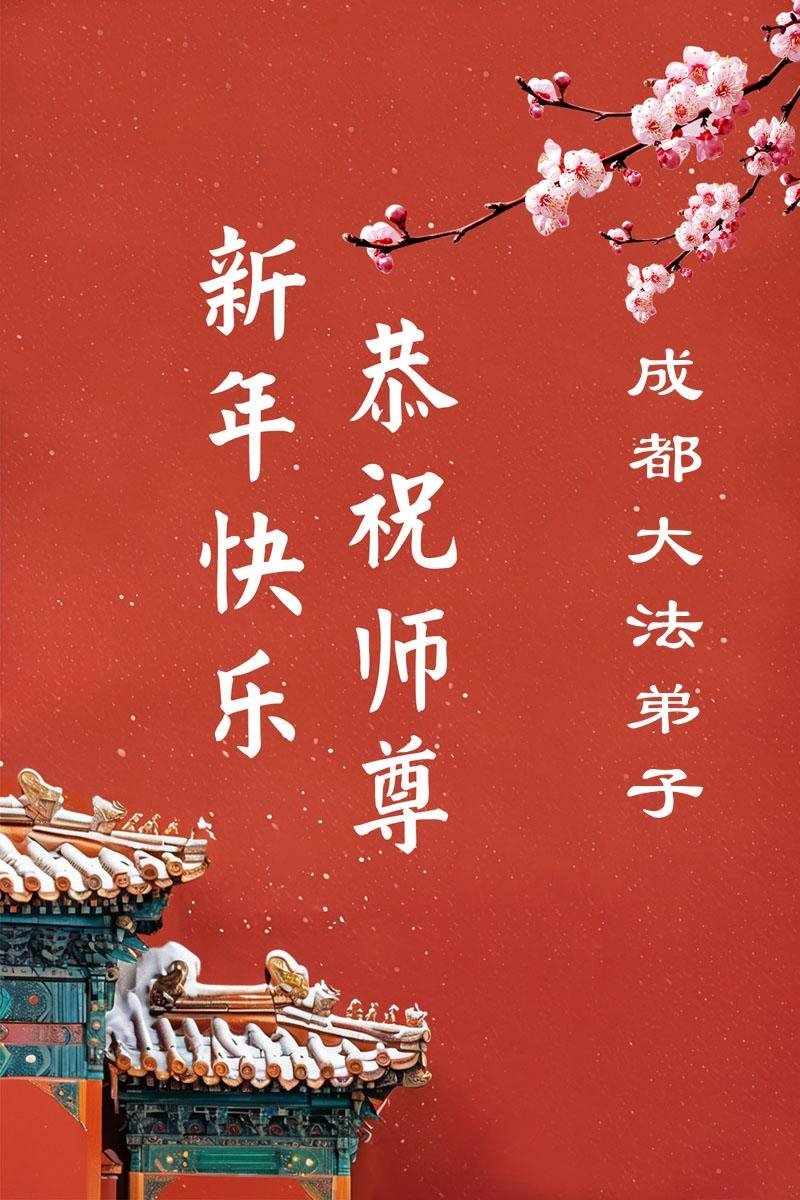 成都大法弟子
恭祝师尊
新年快乐